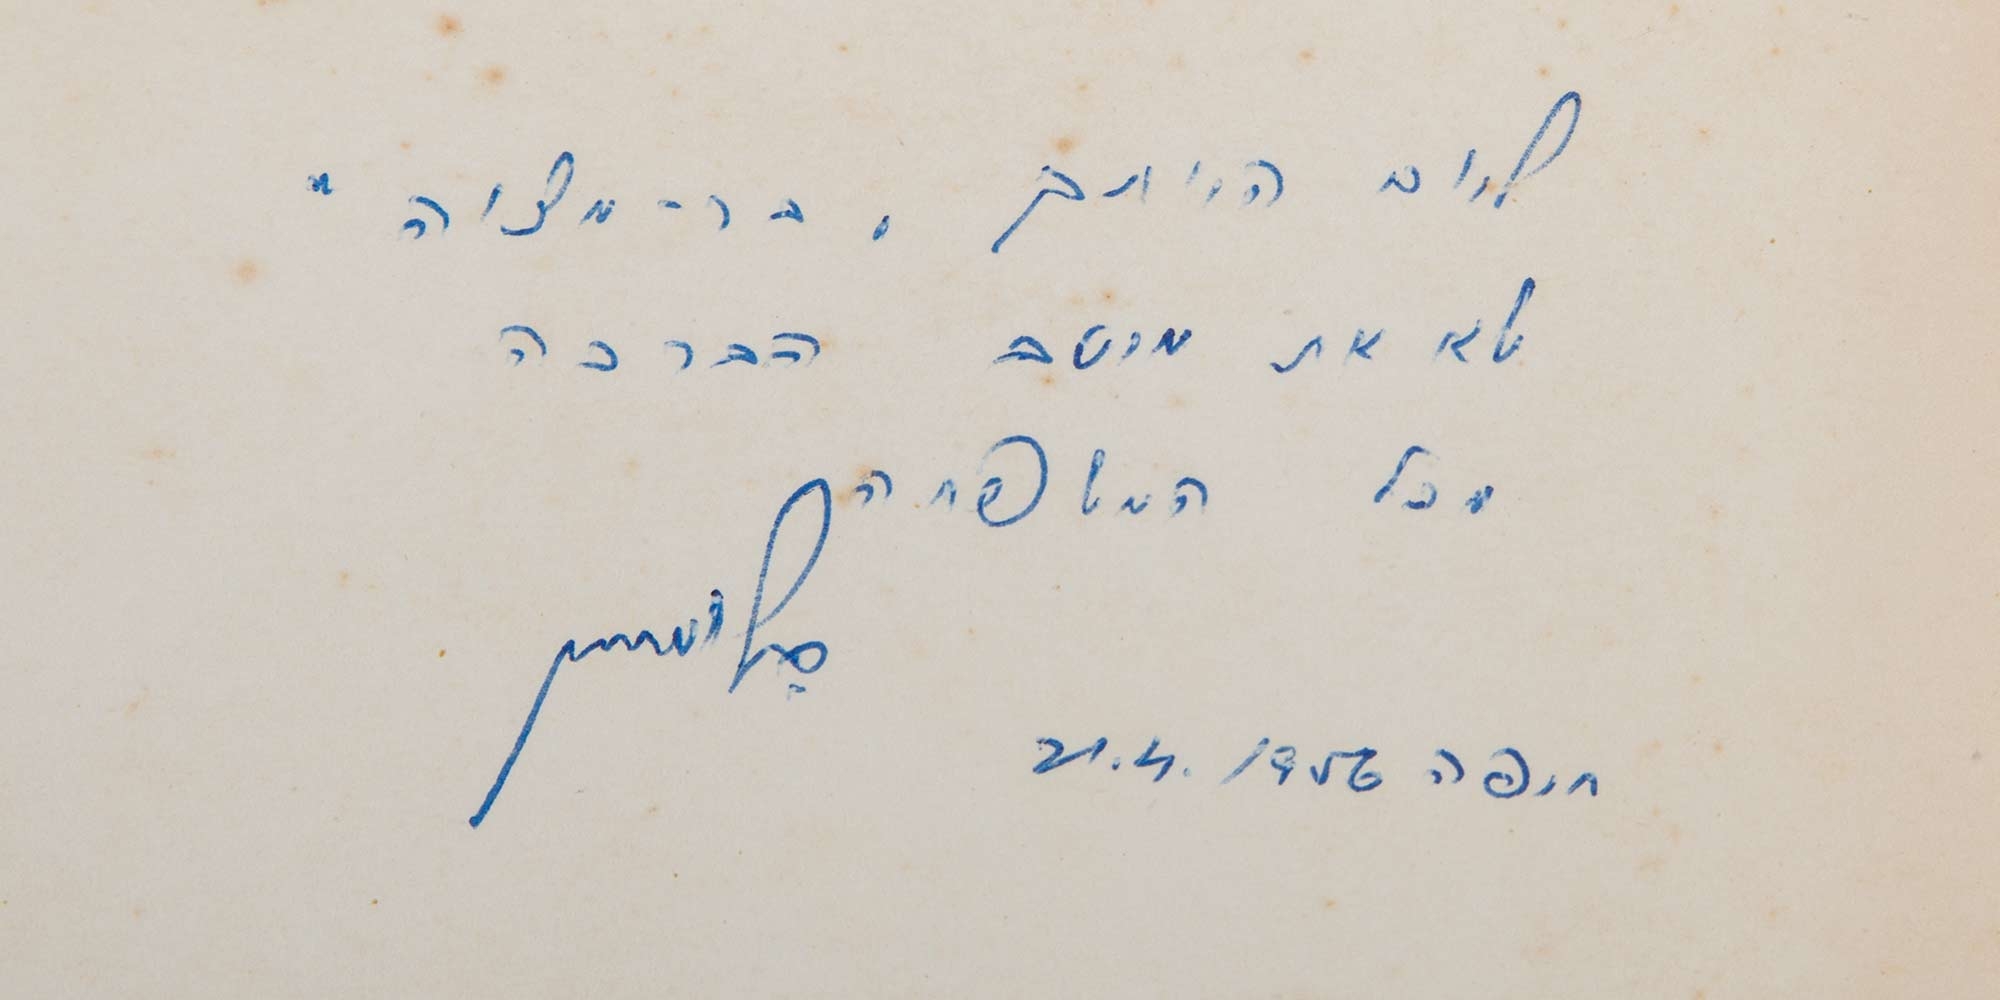 ליום היותך „בר-מצוה"
שא את מיטב הברכה
מכל המשפחה
חיפה 21.4.1956